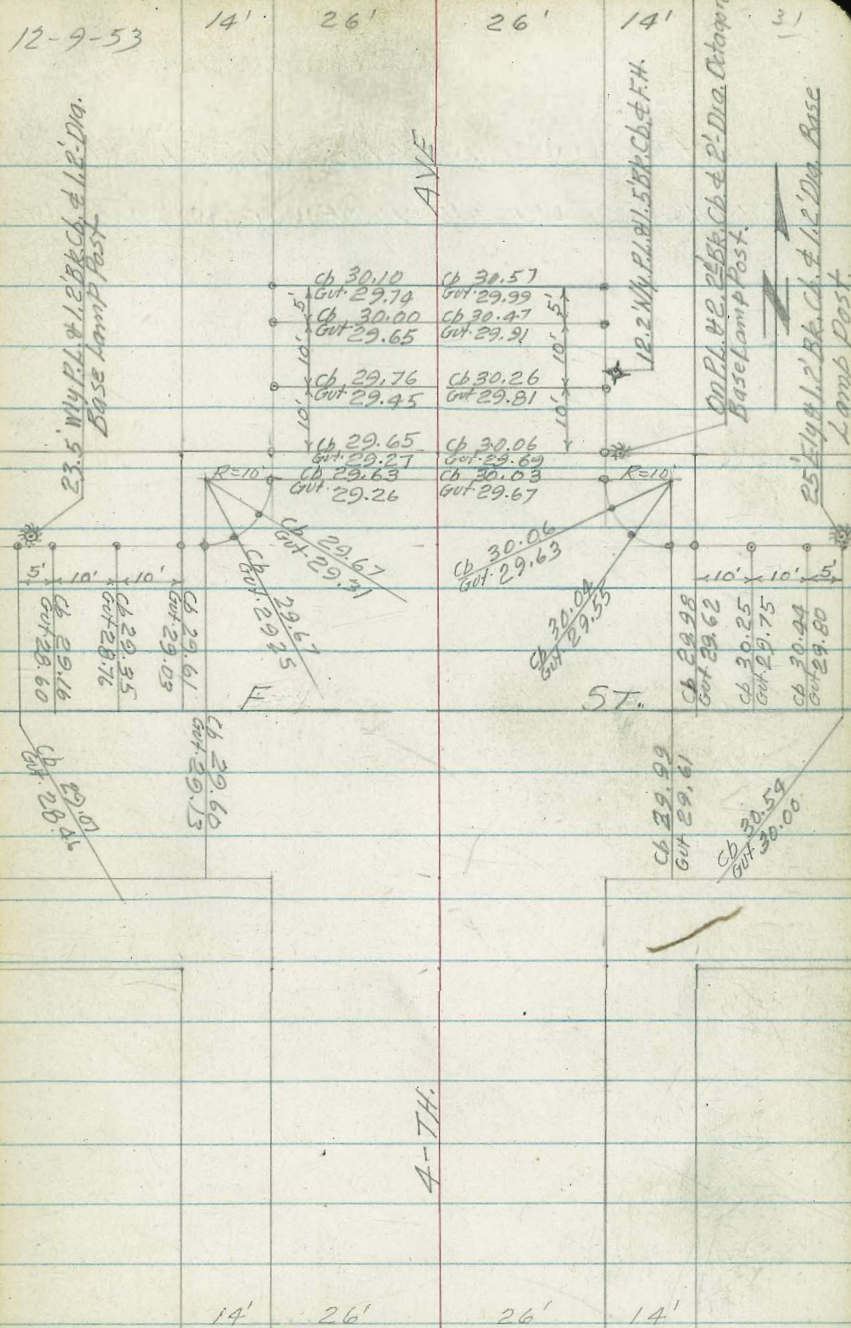 12-9-53
14'
26'
26'
14'
31
23.5' Wly P.L. & 1.2' Bk. Cb. & 1.2'-Dia.
Base Lamp Post
AVE
12.2' Nly P.L. & 1.5' Bk. Cb. & F.H.
On P.L. & 2.2' Bk. Cb. & 2'-Dia. Octagon
Base Lamp Post.
25' Ely & 1.2' Bk. Cb. & 1.2' Dia. Base
Lamp Post.
Cb 30.10
Gut. 29.74
Cb 30.57
Gut. 29.99
5'
5'
Cb 30.00
Gut. 29.65
Cb 30.47
Gut. 29.91
10'
10'
Cb 29.76
Gut. 29.45
Cb 30.26
Gut. 29.81
10'
10'
Cb 29.65
Gut. 29.27
Cb 30.06
Gut. 29.69
R=10'
Cb 29.63
Gut. 29.26
Cb 30.03
Gut. 29.67
R=10'
Cb 29.67
Gut. 29.31
Cb 29.67
Gut. 29.25
Cb 30.06
Gut. 29.63
Cb 30.04
Gut. 29.55
5'
10'
10'
10'
10'
5'
Cb 29.16
Gut 28.60
Cb 29.35
Gut 28.76
Cb 29.61
Gut. 29.03
Cb 29.98
Gut 29.62
Cb 30.25
Gut 29.75
Cb 30.44
Gut 29.80
F
ST.
Cb 29.60
Gut. 29.13
Cb 29.99
Gut 29.61
Cb 30.54
Gut. 30.00
4-TH.
14'
26'
26'
14'